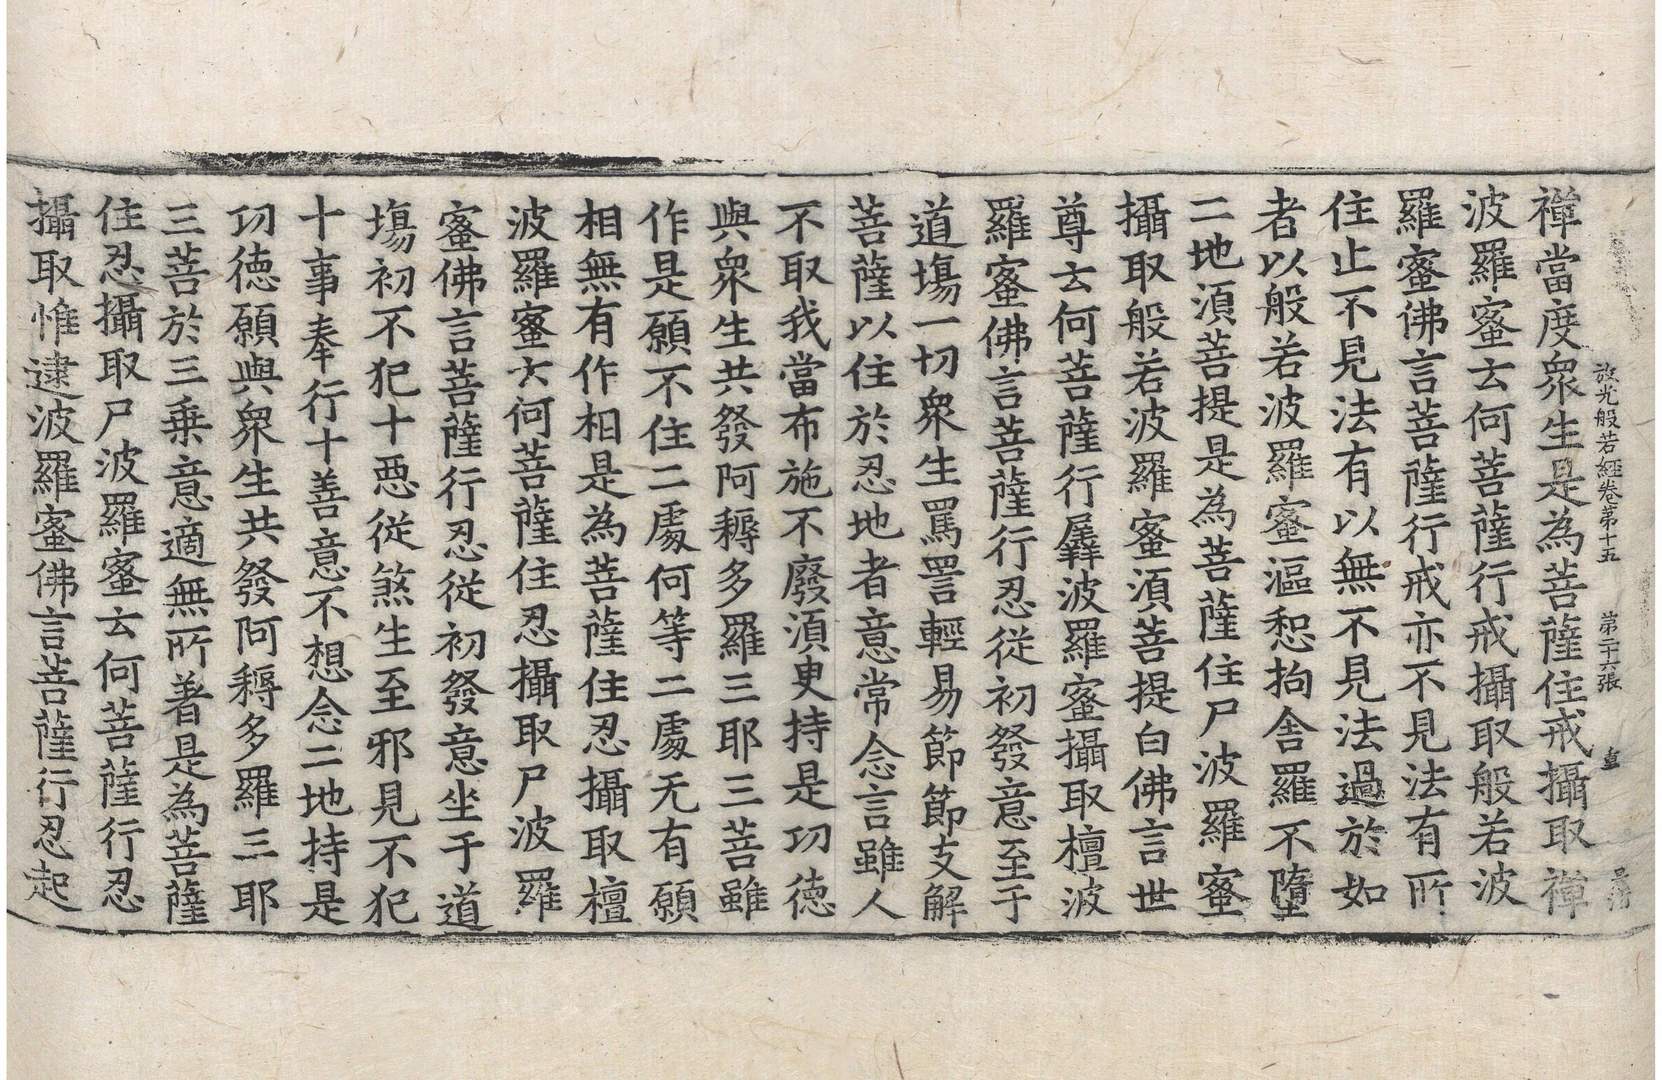 放光般若經卷第十五　第二十六張
禪當度衆生是為菩薩住戒攝取禪
波羅蜜云何菩薩行戒攝取般若波
羅蜜佛言菩薩行戒亦不見法有所
住止不見法有以無不見法過於如
者以般若波羅蜜漚惒拘舍羅不墮
二地湏菩提是為菩薩住尸波羅蜜
攝取般若波羅蜜湏菩提白佛言世
尊云何菩薩行羼波羅蜜攝取檀波
羅蜜佛言菩薩行忍從初發意至于
道場一切衆生罵詈輕易節節支解
菩薩以住於忍地者意常念言雖人
不取我當布施不廢湏更持是功徳
與衆生共發阿耨多羅三耶三菩雖
作是願不住二處何等二處无有願
相無有作相是為菩薩住忍攝取檀
波羅蜜云何菩薩住忍攝取尸波羅
蜜佛言菩薩行忍從初發意坐于道
場初不犯十惡從煞生至邪見不犯
十事奉行十善意不想念二地持是
功徳願與衆生共發阿耨多羅三耶
三菩於三乗意適無所著是為菩薩
住忍攝取尸波羅蜜云何菩薩行忍
攝取惟逮波羅蜜佛言菩薩行忍起